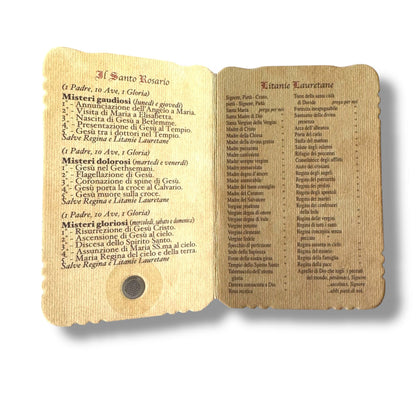 Il Santo Rosario
(1 Padre, 10 Ave, 1 Gloria)
Misteri gaudiosi (lunedì e giovedì)
1° - Annunciazione dell'Angelo a Maria.
2° - Visita di Maria a Elisabetta.
3° - Nascita di Gesù a Betlemme.
4° - Presentazione di Gesù al Tempio.
5° - Gesù tra i dottori nel Tempio.
Salve Regina e Litanie Lauretane
(1 Padre, 10 Ave, 1 Gloria)
Misteri dolorosi (martedì e venerdì)
1° - Gesù nel Gethsemani.
2° - Flagellazione di Gesù.
3° - Coronazione di spine di Gesù.
4° - Gesù porta la croce al Calvario.
5° - Gesù muore sulla croce.
Salve Regina e Litanie Lauretane
(1 Padre, 10 Ave, 1 Gloria)
Misteri gloriosi (mercoledì, sabato e domenica)
1° - Risurrezione di Gesù Cristo.
2° - Ascensione di Gesù al cielo.
3° - Discesa dello Spirito Santo.
4° - Assunzione di Maria SS.ma al cielo.
5° - Maria Regina del cielo e della terra.
Salve Regina e Litanie Lauretane
Litanie Lauretane
Signore, Pietà - Cristo,
pietà - Signore, Pietà
Santa Maria prega per noi
Santa Madre di Dio
Santa Vergine delle Vergini
Madre di Cristo
Madre della Chiesa
Madre della divina grazia
Madre purissima
Madre castissima
Madre sempre vergine
Madre immacolata
Madre degna d'amore
Madre ammirabile
Madre del buon consiglio
Madre del Creatore
Madre del Salvatore
Vergine prudente
Vergine
Vergine
Vergine potente
Vergine clemente
Vergine fedele
Specchio di perfezione
Sede della Sapienza
Fonte della nostra gioia
Tempio dello Spirito Santo
Tabernacolo dell'eterna
gloria
Dimora consacrata a Dio
Rosa mistica
Torre della santa città
di Davide prega per noi
Fortezza inespugnabile
Santuario della divina
presenza
Arca dell'alleanza
Porta del cielo
Stella del mattino
Salute degli infermi
Rifugio dei peccatori
Consolatrice degli afflitti
Aiuto dei cristiani
Regina degli angeli
Regina dei patriarchi
Regina dei profeti
Regina degli Apostoli
Regina dei martiri
Regina
Regina delle vergini
Regina di tutti i santi
Regina concepita senza
peccato
Regina assunta in cielo
Regina del rosario
Regina della famiglia
Regina della pace
Agnello di Dio che togli i peccati
del mondo, perdonaci, Signore
...ascoltaci, Signore
...abbi pietà di noi.